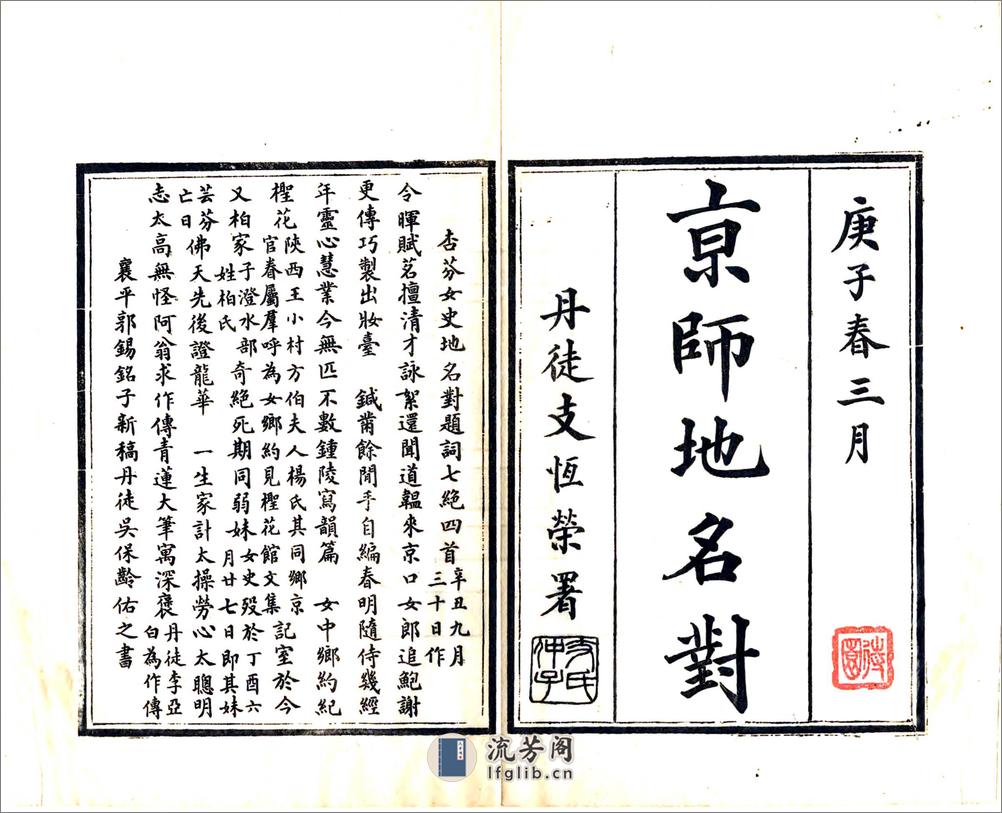 庚子春三月
京師地名對
丹徒支恆榮署
支氏仲子
杏芬女史地名對題詞七絕四首辛丑九月三十日作
令暉賦茗擅清才詠絮還聞道韞來京口女郎追鮑謝
更傳巧製出妝臺　鍼黹餘閒手自編春明隨侍幾經
年靈心慧業今無匹不數鍾陵寫韻篇　女中鄉約紀
檉花陝西王小村方伯夫人楊氏其同鄉京官眷屬羣呼為女鄉約見檉花館文集記室於今
又柏家子澄水部姓柏氏奇絕死期同弱妹女史歿於丁酉六月廿七日即其妹
芸芬亡日佛天先後證龍華　一生家計太操勞心太聰明
志太高無怪阿翁求作傳青蓮大筆寓深褒丹徒李亞白為作傳
襄平郭錫銘子新稿丹徒吳保齡佑之書
流芳阁
lfglib.cn